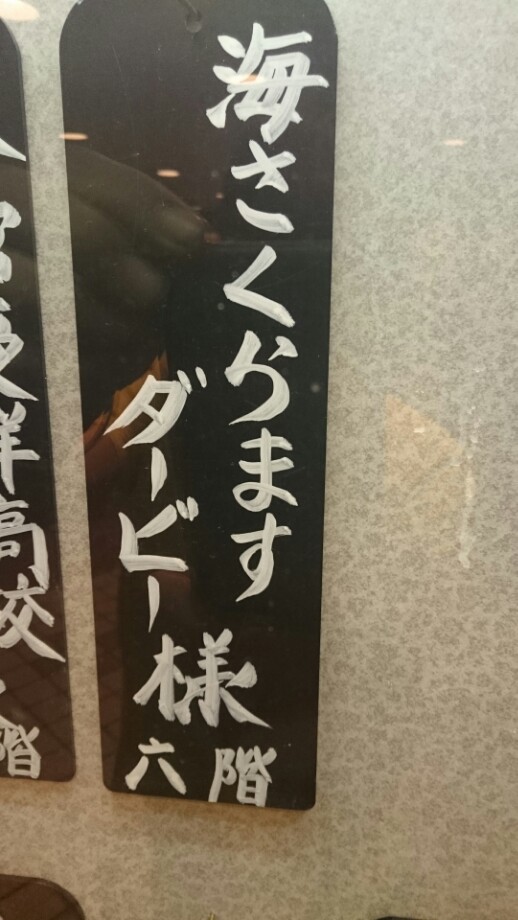 海さくらます
ダービー様
六階
洋高校
階